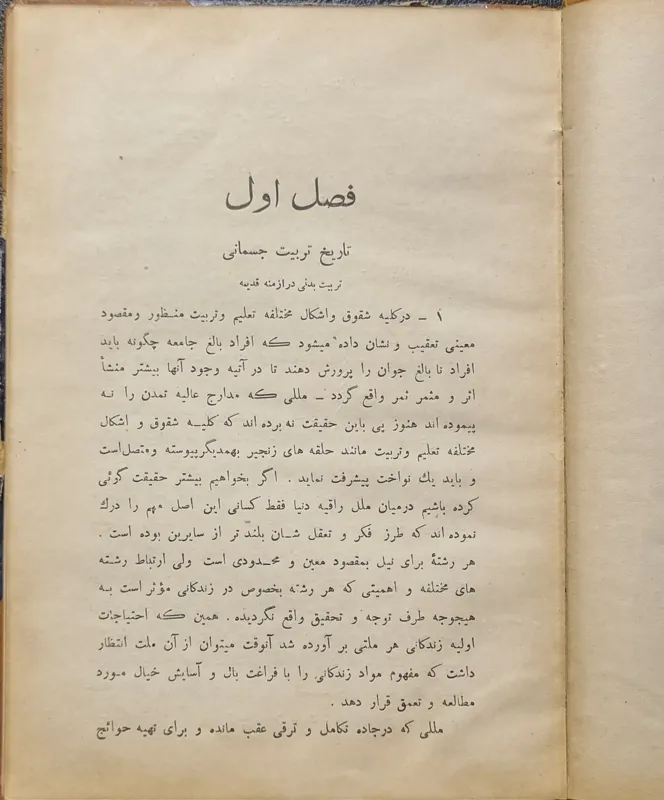 فصل اول
تاریخ تربیت جسمانی
تربیت بدنی در ازمنه قدیمه
۱ ــ در کلیه شقوق و اشکال مختلفه تعلیم و تربیت منظور و مقصود
معینی تعقیب و نشان داده میشود که افراد بالغ جامعه چگونه باید
افراد نا بالغ جوان را پرورش دهند تا در آتیه وجود آنها بیشتر منشأ
اثر و مثمر ثمر واقع گردد ــ مللی که مدارج عالیه تمدن را نه
پیموده اند هنوز پی باین حقیقت نه برده اند که کلیه شقوق و اشکال
مختلفه تعلیم و تربیت مانند حلقه های زنجیر بهمدیگر پیوسته و متصل است
و باید یك نواخت پیشرفت نماید . اگر بخواهیم بیشتر حقیقت گوئی
کرده باشیم درمیان ملل راقیه دنیا فقط کسانی این اصل مهم را درك
نموده اند که طرز فکر و تعقل شان بلند تر از سایرین بوده است .
هر رشتهٔ برای نیل بمقصود معین و محدودی است ولی ارتباط رشته
های مختلفه و اهمیتی که هر رشته بخصوص در زندکانی مؤثر است به
هیچوجه طرف توجه و تحقیق واقع نگردیده . همین که احتیاجات
اولیه زندکانی هر ملتی بر آورده شد آنوقت میتوان از آن ملت انتظار
داشت که مفهوم مواد زندکانی را با فراغت بال و آسایش خیال مورد
مطالعه و تعمق قرار دهد .
مللی که درجاده تکامل و ترقی عقب مانده و برای تهیه حوائج